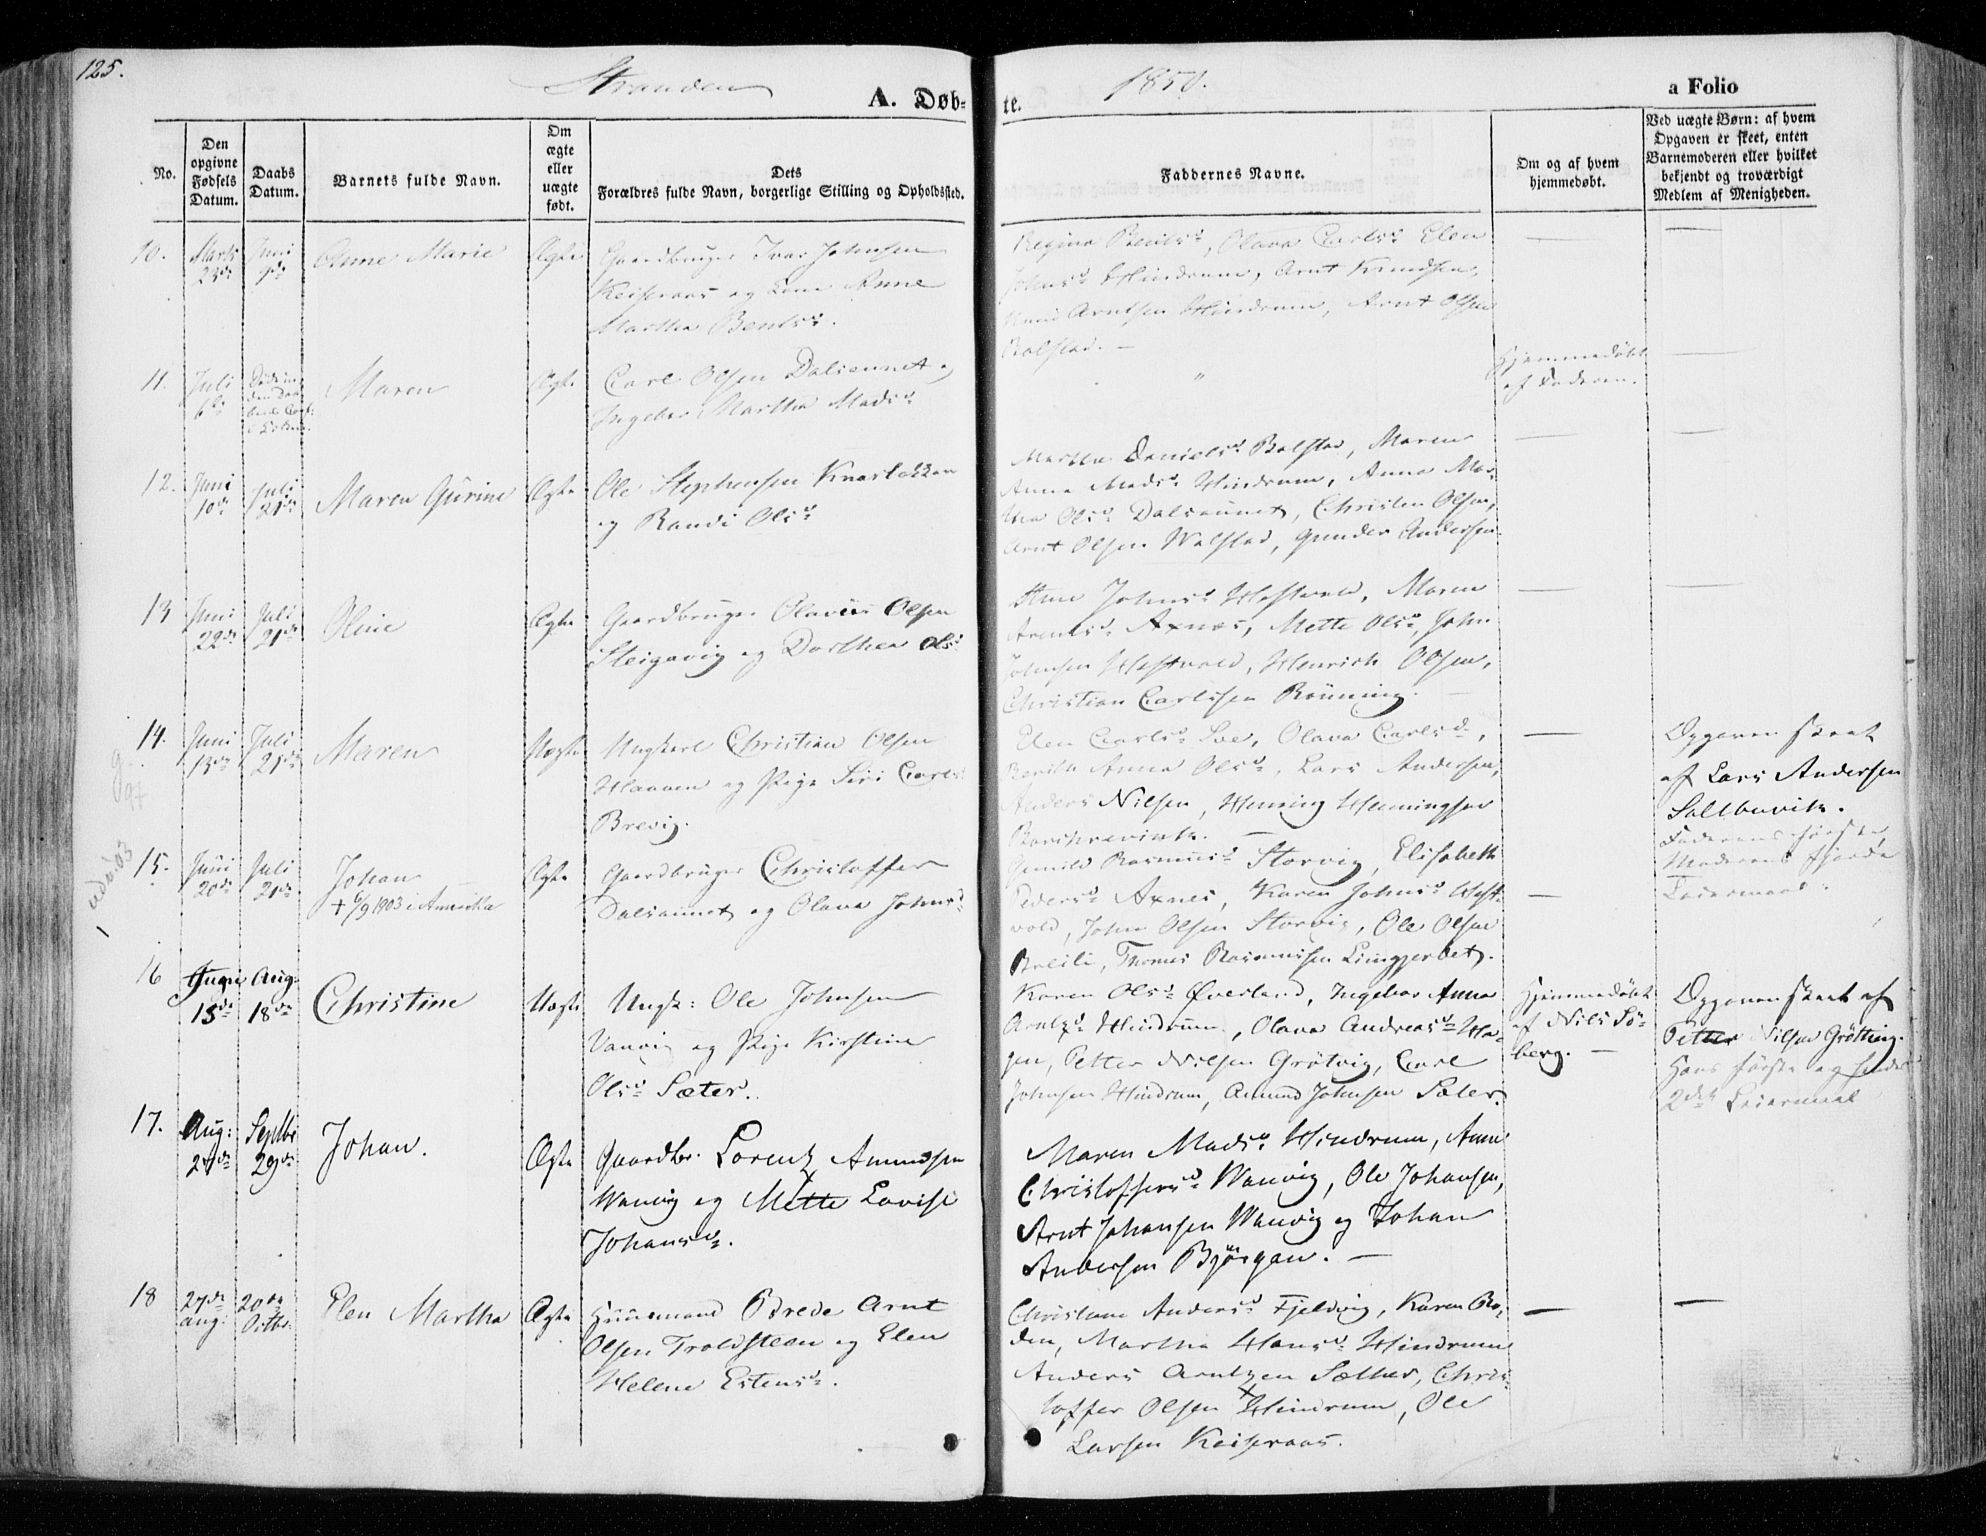 125.
Stranden
A. Døb-
te.
1850.
a Folio
No.
Den
opgivne
Fødsels
Datum.
Daabs
Datum.
Barnets fulde Navn.
Om
ægte
eller
uægte
født.
Dets
Forældres fulde Navn, borgerlige Stilling og Opholdssted.
Faddernes Navne.
Om og af hvem
hjemmedøbt.
Ved uægte Børn: af hvem
Opgaven er skeet, enten
Barnemoderen eller hvilket
bekjendt og troværdigt
Medlem af Menigheden.
10.
Marts
23de
Juni
9de
Anne Marie
Ægte
Gaardbruger Ivar Johnsen
Keiseraas og Kone Anne
Martha Bentsd.
Regina Bentsd, Olava Carlsd Elen
Johnsd Hindrum, Arnt Knudsen,
Knud Arntsen Hindrum, Arnt Olsen
Balstad. —
11.
Juli
6te
Maren
Ægte
Carl Olsen Dalsaunet og
Ingebor Martha Madsd
"
Hjemmedøbt
af Faderen.
12.
Juni
10de
Juli
21de
Maren Gurine
Ægte
Ole Stephensen Knarlakken
og Randi Olsd
Martha Danielsd Balstad, Maren
Anna Madsd Hindrum, Anna Mar-
tha Olsd Dalsaunet, Christen Olsen,
Arnt Olsen Walstad, Gunder Andersen
13
Juni
22de
Juli
21de
Oline
Ægte
Gaardbruger Olavus Olsen
Steigavig og Dorthea Olsd
Ane Johnsd Hestvold, Maren
Arentsd Axnes, Mette Olsd, John
Johnsen Hestvold, Henrich Olsen,
Christian Carlssen Rønning.
14.
Juni
13de
Juli
21de
Maren
Uægte
Ungkarl Christian Olsen
Haaven og Pige Siri Carlsd
Brevig.
Elen Carlsd Sve, Olava Carlsd,
Anna Olsd, Lars Andersen,
Anders Nilsen, Henning Henningsen
Opgaven skeet
af Lars Andersen
Saltbuvik.
Faderens første
Moderens fjerde
Leiermaal.
15.
Juni
20de
Juli
21de
Johan
† 6/9 1903 i Amerika
Ægte
Gaardbruger Christoffer
Dalsaunet og Olava Johnsd
Gunild Rasmusd Storvig, Elisabeth
Pedersd Axnes, Karen Johnsd Hest-
vold, John Olsen Storvig, Ole Olsen
Breili, Thomas Rasmussen Lunggjerdet.
16
Juni
13de
Aug.
18de
Christine
Uægte
Ungk: Ole Johnsen
Vanvig og Pige Kirstine
Olsd Sæter.
Karen Olsd Øverland, Ingebor Anna
Arntzd Hindrum, Olava Andreasd Ha-
gen, Petter Nilsen Grøtvig, Carl
Johnsen Hindrum, Amund Johnsen Sæter.
Hjemmedøbt
af Nils Sø-
berg. —
Opgaven skeet af
Petter Nilsen Grøtting.
Hans første og hendes
2det Leiermaal
17.
Aug:
27de
Septbr
29de
Johan.
Ægte
Gaardbr. Lorentz Amundsen
Wanvig og Mette Lovise
Johansd.
Maren Madsd Hindrum, Ane
Christoffersd Wanvig, Ole Johansen,
Arnt Johansen Wanvig og Johan
Andersen Bjørgan. —
18
27de
aug:
20de
Octbr.
Elen Martha
Ægte
Huusmand Brede Arnt
Olsen Troldsteen og Elen
Helene Estensd.
Christiane Andersd Fjeldvig, Karen Bo-
den, Martha Hansd Hindrum
Anders Arntzen Sæther, Chris-
toffer Olsen Hindrum, Ole
Larsen Keiseraas.